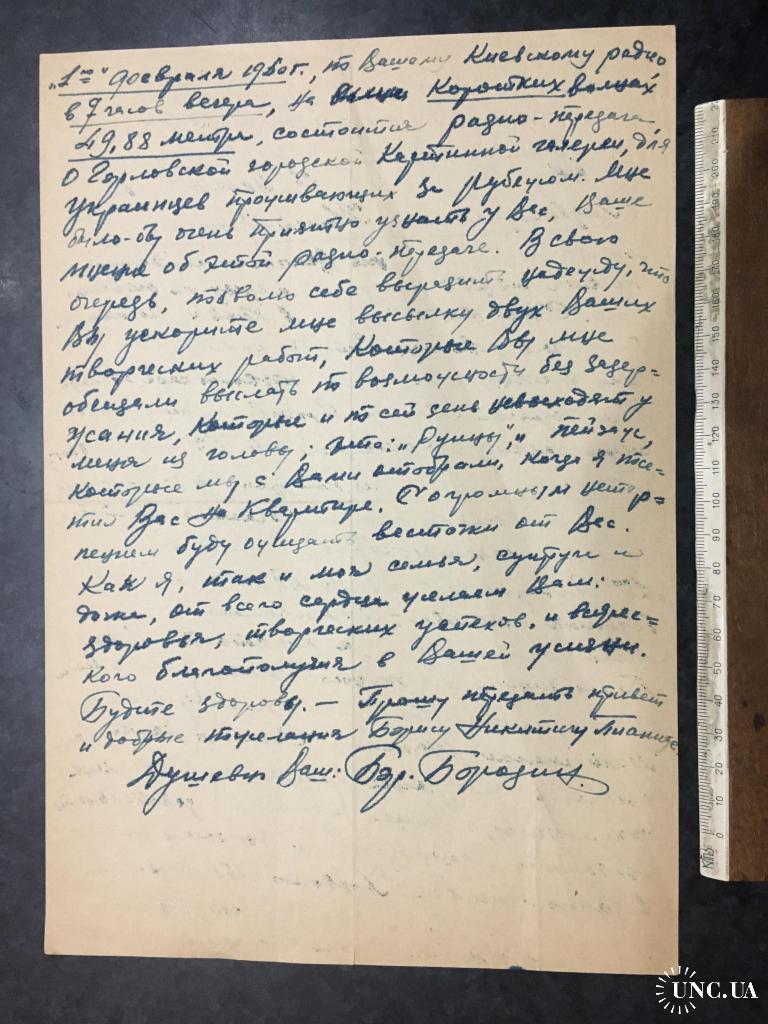 „1го" февраля 1960г., по Вашому Киевскому радио
в 7 часов вечера, на Коротких волнах,
49,88 метра, состоится радио-передача,
О Горловской городской Картинной галереи, для
украинцев проживающих за рубежом. Мне
было-бы очень приятно узнать у Вас, Ваше
мнение об этой радио-передаче. В свою
очередь, позволю себе выразить надежду, что
Вы ускорите мне высылку двух Ваших
творческих работ, Которые Вы мне
обещали выслать по возможности без задер=
жания, Которые и по сей день невыходят у
меня из головы; это: „Руины", и пейзаж,
которые мы с Вами отобрали, когда я посе=
тил Вас на Квартире. С огромным нетер=
пением буду ожидать весточки от Вас.
Как я, так и моя семья, супруги и
дочь, от всего сердца желаем Вам:
здоровья, творческих успехов, и всячес=
кого благополучия в Вашей жизни.
Будте здоровы. — Прошу передать привет
и добрые пожелания Борису Никитичу
Душевно Ваш: Бородин.
0 10 20 30 40 50 60 70 80 90 100 110 120 130 140 150 160 170 180 190 200 210
UNC.UA